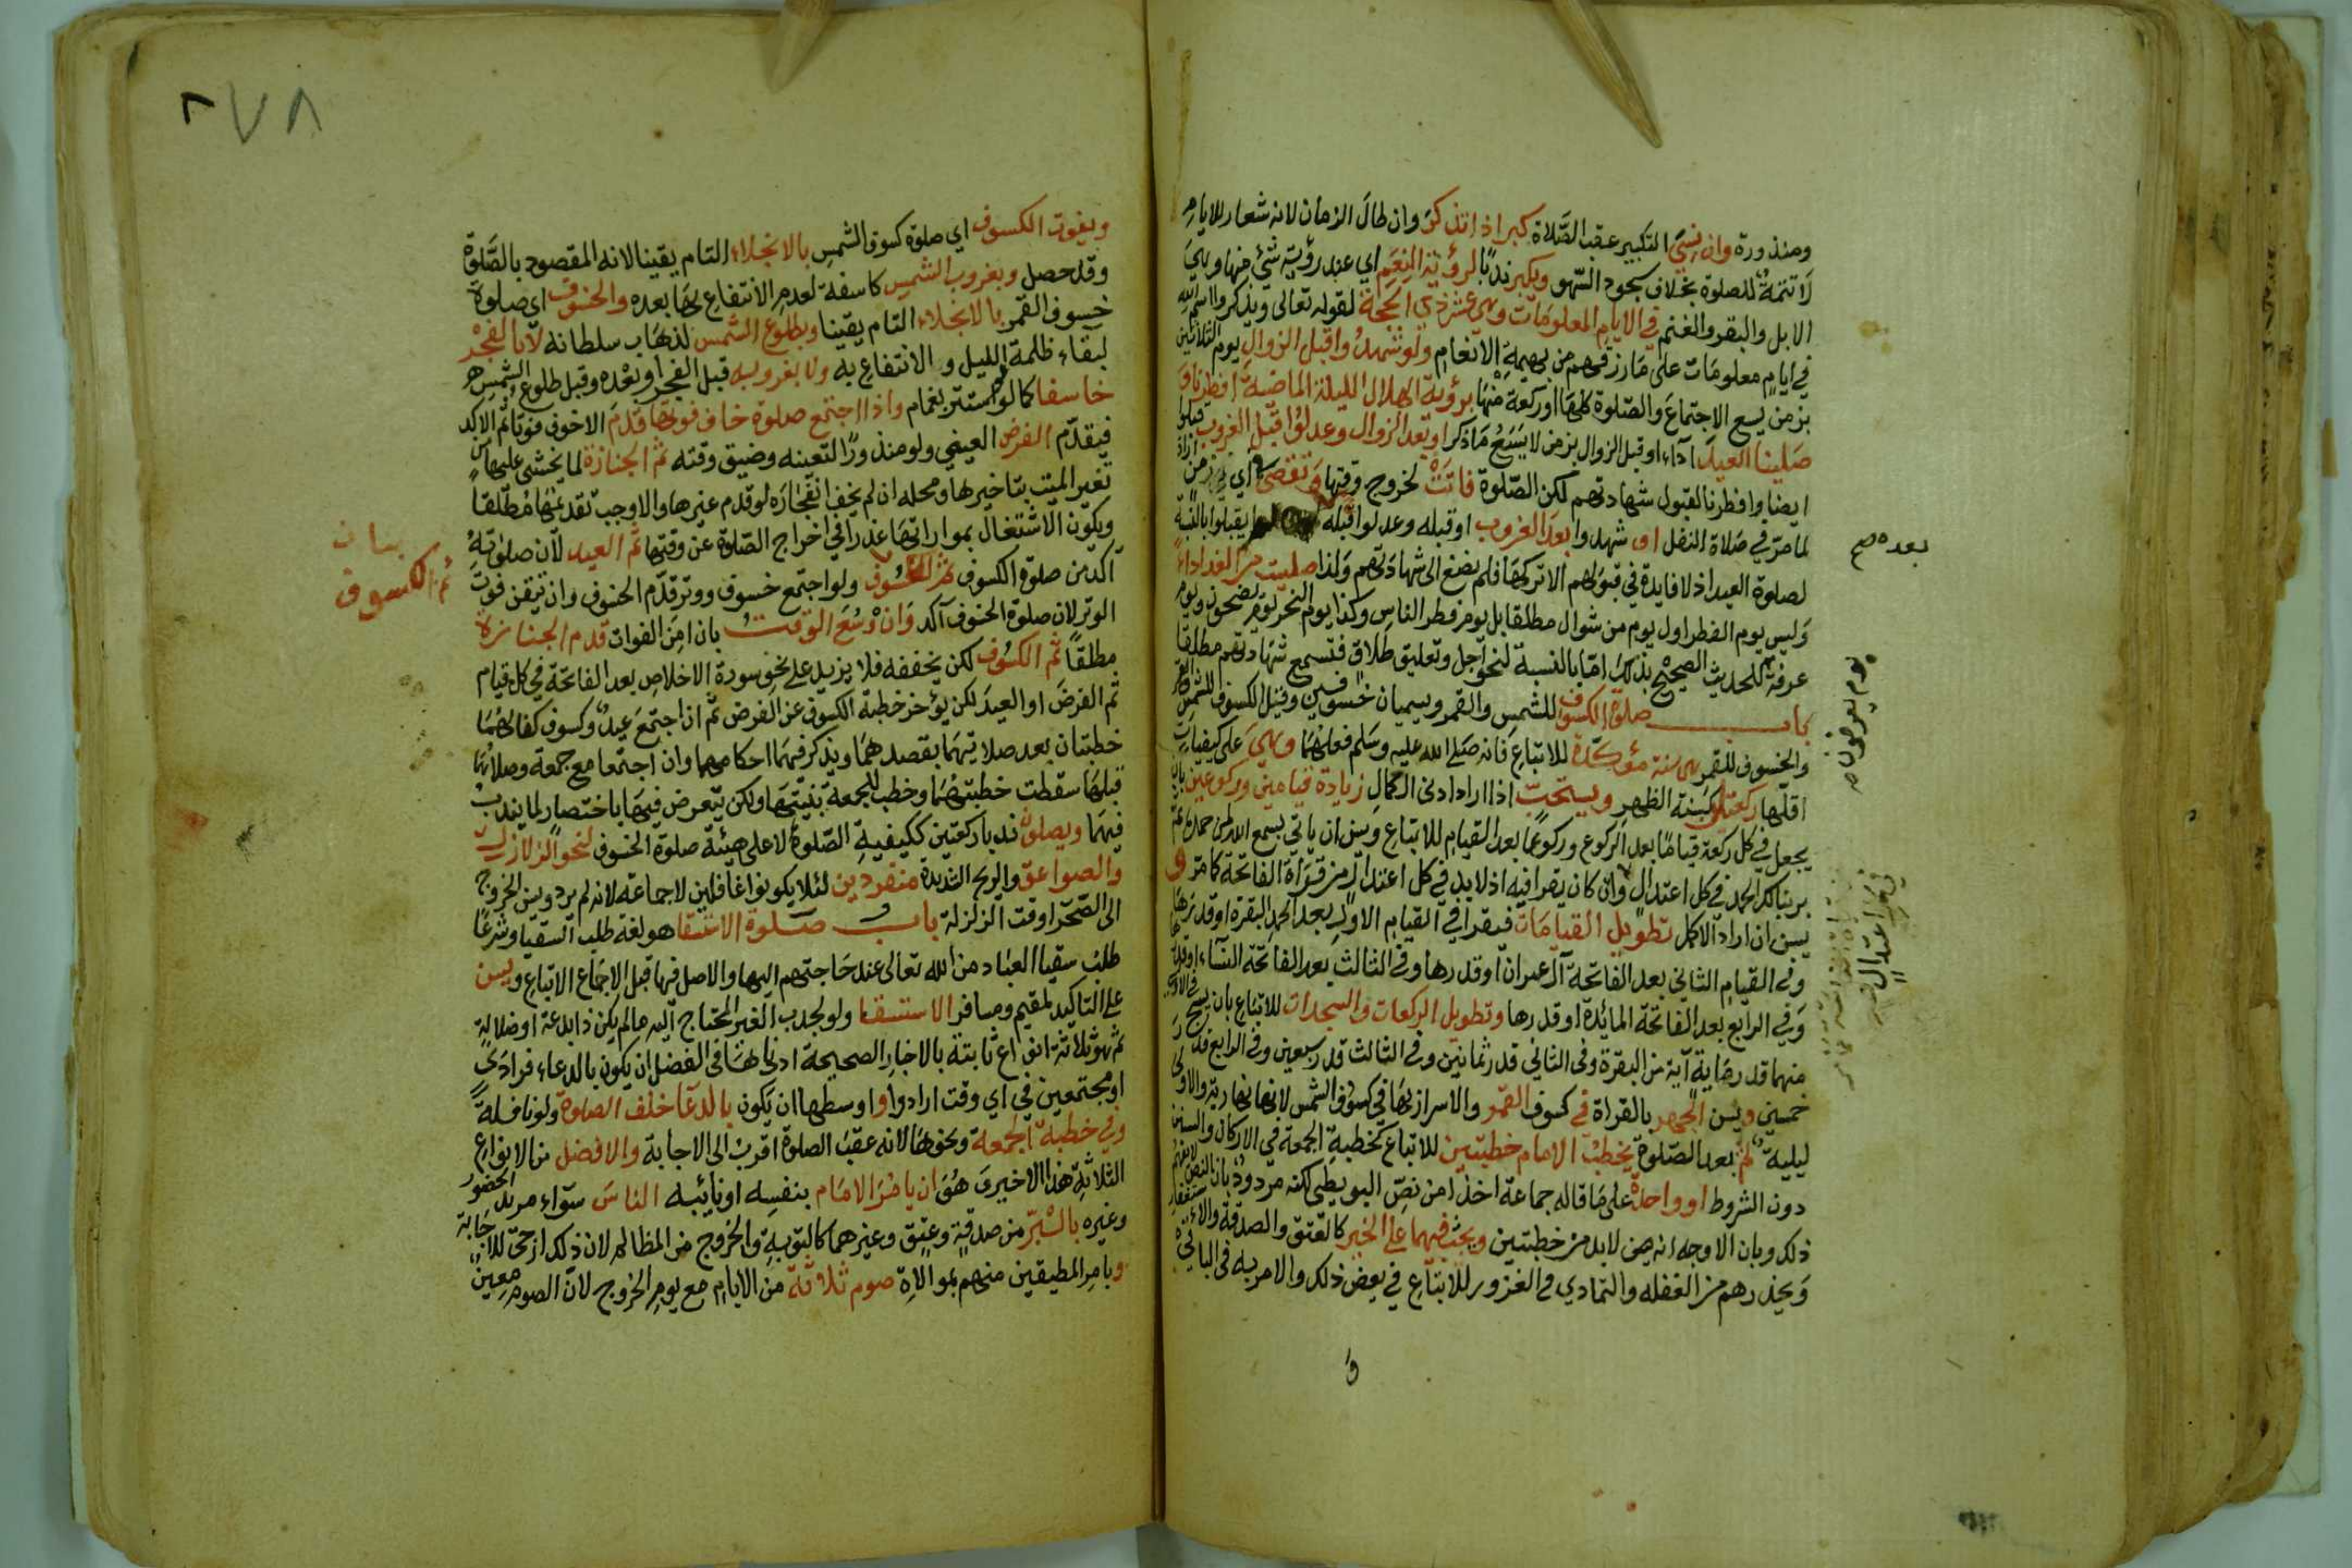 ومنذورة وان نسي التكبير عقب الصلاة كبر اذا تذكر وان طال الزمان لانه شعار للايام
لا تتمة للصلوة بخلاف سجود السهو ويكبر ندبا لرؤية النعم اي عند رؤية شئ منها وهي
الابل والبقر والغنم في الايام المعلومات وهي عشر ذي الحجة لقوله تعالى ويذكروا اسم الله
في ايام معلومات على مارزقهم من بهيمة الانعام ولو شهدوا قبل الزوال يوم الثلاثين
بزمن يسع الاجتماع والصلوة كلها او ركعة منها برؤية الهلال الليلة الماضية افطرنا و
صلينا العيد آداء او قبل الزوال بزمن لا يسع ما ذكر او بعد الزوال وعدلوا قبل الغروب قبلوا
ايضا وافطرنا لقبول شهادتهم لكن الصلوة فاتت لخروج وقتها وتقضى اي زمن اراد
لما مر في صلاة النفل او شهدوا بعد الغروب او قبله وعدلوا يقبلوا بالنسبة
لصلوة العيد اذ لا فايدة في قبولهم الا تركها فلم يصغ الى شهادتهم ولذا صليت من الغد اداء
وليس يوم الفطر اول يوم من شوال مطلقا بل يوم فطر الناس وكذا يوم النحر يوم يضحون ويوم
عرفة للحديث الصحيح بذلك اما بالنسبة لنحو اجل وتعليق طلاق فتسمع شهادتهم مطلقا
باب صلوة الكسوف للشمس والقمر ويسميان خسوفين وقيل الكسوف للشمس
والخسوف للقمر هي سنة مؤكدة للاتباع فانه صلى الله عليه وسلم فعلهما وهي على كيفيات
اقلها ركعتان كسنة الظهر ويستحب اذا اراد ادنى الكمال زيادة قيامين وركوعين بان
يجعل في كل ركعة قياما بعد الركوع وركوعا بعد القيام للاتباع ويسن ان ياتي بسمع الله لمن حمده ثم
بربنا لك الحمد في كل اعتدال وان كان يقرا فيه اذ لا بد في كل اعتدال من قراة الفاتحة كما مر و
يسن ان اراد الاكمل تطويل القيامات فيقرا في القيام الاول بعد الحمد البقرة او قدرها
وفي القيام الثاني بعد الفاتحة آل عمران او قدرها وفي الثالث بعد الفاتحة النساء او قدرها
وفي الرابع بعد الفاتحة المائدة او قدرها وتطويل الركعات والسجدات للاتباع بان يسبح في الاول
منهما قدر مماية آية من البقرة وفي الثاني قدر ثمانين وفي الثالث قدر سبعين وفي الرابع قدر
خمسين ويسن الجهر بالقراة في كسوف القمر والاسرار بها في كسوف الشمس لانها نهارية والاولى
ليلية ثم بعد الصلوة يخطب الامام خطبتين للاتباع كخطبة الجمعة في الاركان والسنن
دون الشروط او واحدة على ما قاله جماعة اخذا من نص البويطي لكنه مردود بان النص لا يفهم
ذلك وبان الاوجه انه لابد من خطبتين ويحث فيهما على الخير كالعتق والصدقة والاستغفار
ويحذرهم من الغفله والتمادي في الغرور للاتباع في بعض ذلك والامر به في الباقي
و
بعده صح
يوم يعرفون صح
اعتدال
٧٨
ويفوت الكسوف اي صلوة كسوف الشمس بالانجلاء التام يقينا لانه المقصود بالصلوة
وقد حصل وبغروب الشمس كاسفة لعدم الانتفاع بها بعده والخسوف اي صلوة
خسوف القمر بالانجلاء التام يقينا وبطلوع الشمس لذهاب سلطانه لا بالفجر
لبقاء ظلمة الليل والانتفاع به ولا بغروبه قبل الفجر او بعده وقبل طلوع الشمس
خاسفا كما لو استتر بغمام واذا اجتمع صلوة خاف فوتها قدم الاخوف فوتا ثم الاكد
فيقدم الفرض العيني ولو منذورا لتعينه وضيق وقته ثم الجنازة لما يخشى عليها من
تغير الميت بتاخيرها ومحله ان لم يخف انفجاره لو قدم غيرها والا وجب تقديمها مطلقا
ويكون الاشتغال بمواراتها عذرا في اخراج الصلوة عن وقتها ثم العيد لان صلوته
آكد من صلوة الكسوف ثم الكسوف ولو اجتمع خسوف ووتر قدم الخسوف وان تيقن فوت
الوتر لان صلوة الخسوف آكد وان وسع الوقت بان امن الفوات قدم الجنازة
مطلقا ثم الكسوف لكن يخففه فلا يزيد على نحو سورة الاخلاص بعد الفاتحة في كل قيام
ثم الفرض او العيد لكن يؤخر خطبة الكسوف عن الفرض ثم ان اجتمع عيد وكسوف كفا لهما
خطبتان بعد صلاتيهما بقصدهما ويذكر فيهما احكامهما وان اجتمعا مع جمعة وصلاهما
قبلها سقطت خطبتهما وخطب للجمعة بنيتها ولكن يتعرض فيها باختصار لما يندب
فيهما ويصلون ندبا ركعتين ككيفية الصلوة لا على هيئة صلوة الخسوف لنحو الزلازل
والصواعق والريح الشديدة منفردين لئلا يكونوا غافلين لا جماعة لانه لم يرد ويسن الخروج
الى الصحرا وقت الزلزلة باب صلوة الاستسقا هو لغة طلب السقيا وشرعا
طلب سقيا العباد من الله تعالى عند حاجتهم اليها والاصل فيها قبل الاجماع الاتباع ويسن
على التاكيد لمقيم ومسافر الاستسقا ولو لجدب الغير المحتاج اليه مالم يكن ذا بدعة او ضلالة
ثم هو ثلاثة انواع ثابتة بالاخبار الصحيحة ادناها في الفضل ان يكون بالدعاء فرادى
او مجتمعين في اي وقت ارادوا واوسطها ان يكون بالدعا خلف الصلوة ولو نافلة
وفي خطبة الجمعة ونحوها لانه عقب الصلوة اقرب الى الاجابة والافضل من الانواع
الثلاثة هذا الاخير هو ان يامر الامام بنفسه او نايبه الناس سواء مريد الحضور
وغيره بالبر من صدقة وعتق وغيرهما كالتوبة والخروج من المظالم لان ذلك ارجى للاجابة
ويامر المطيقين منهم بموالاة صوم ثلاثة من الايام مع يوم الخروج لان الصوم معين
بيان
ثم الكسوف